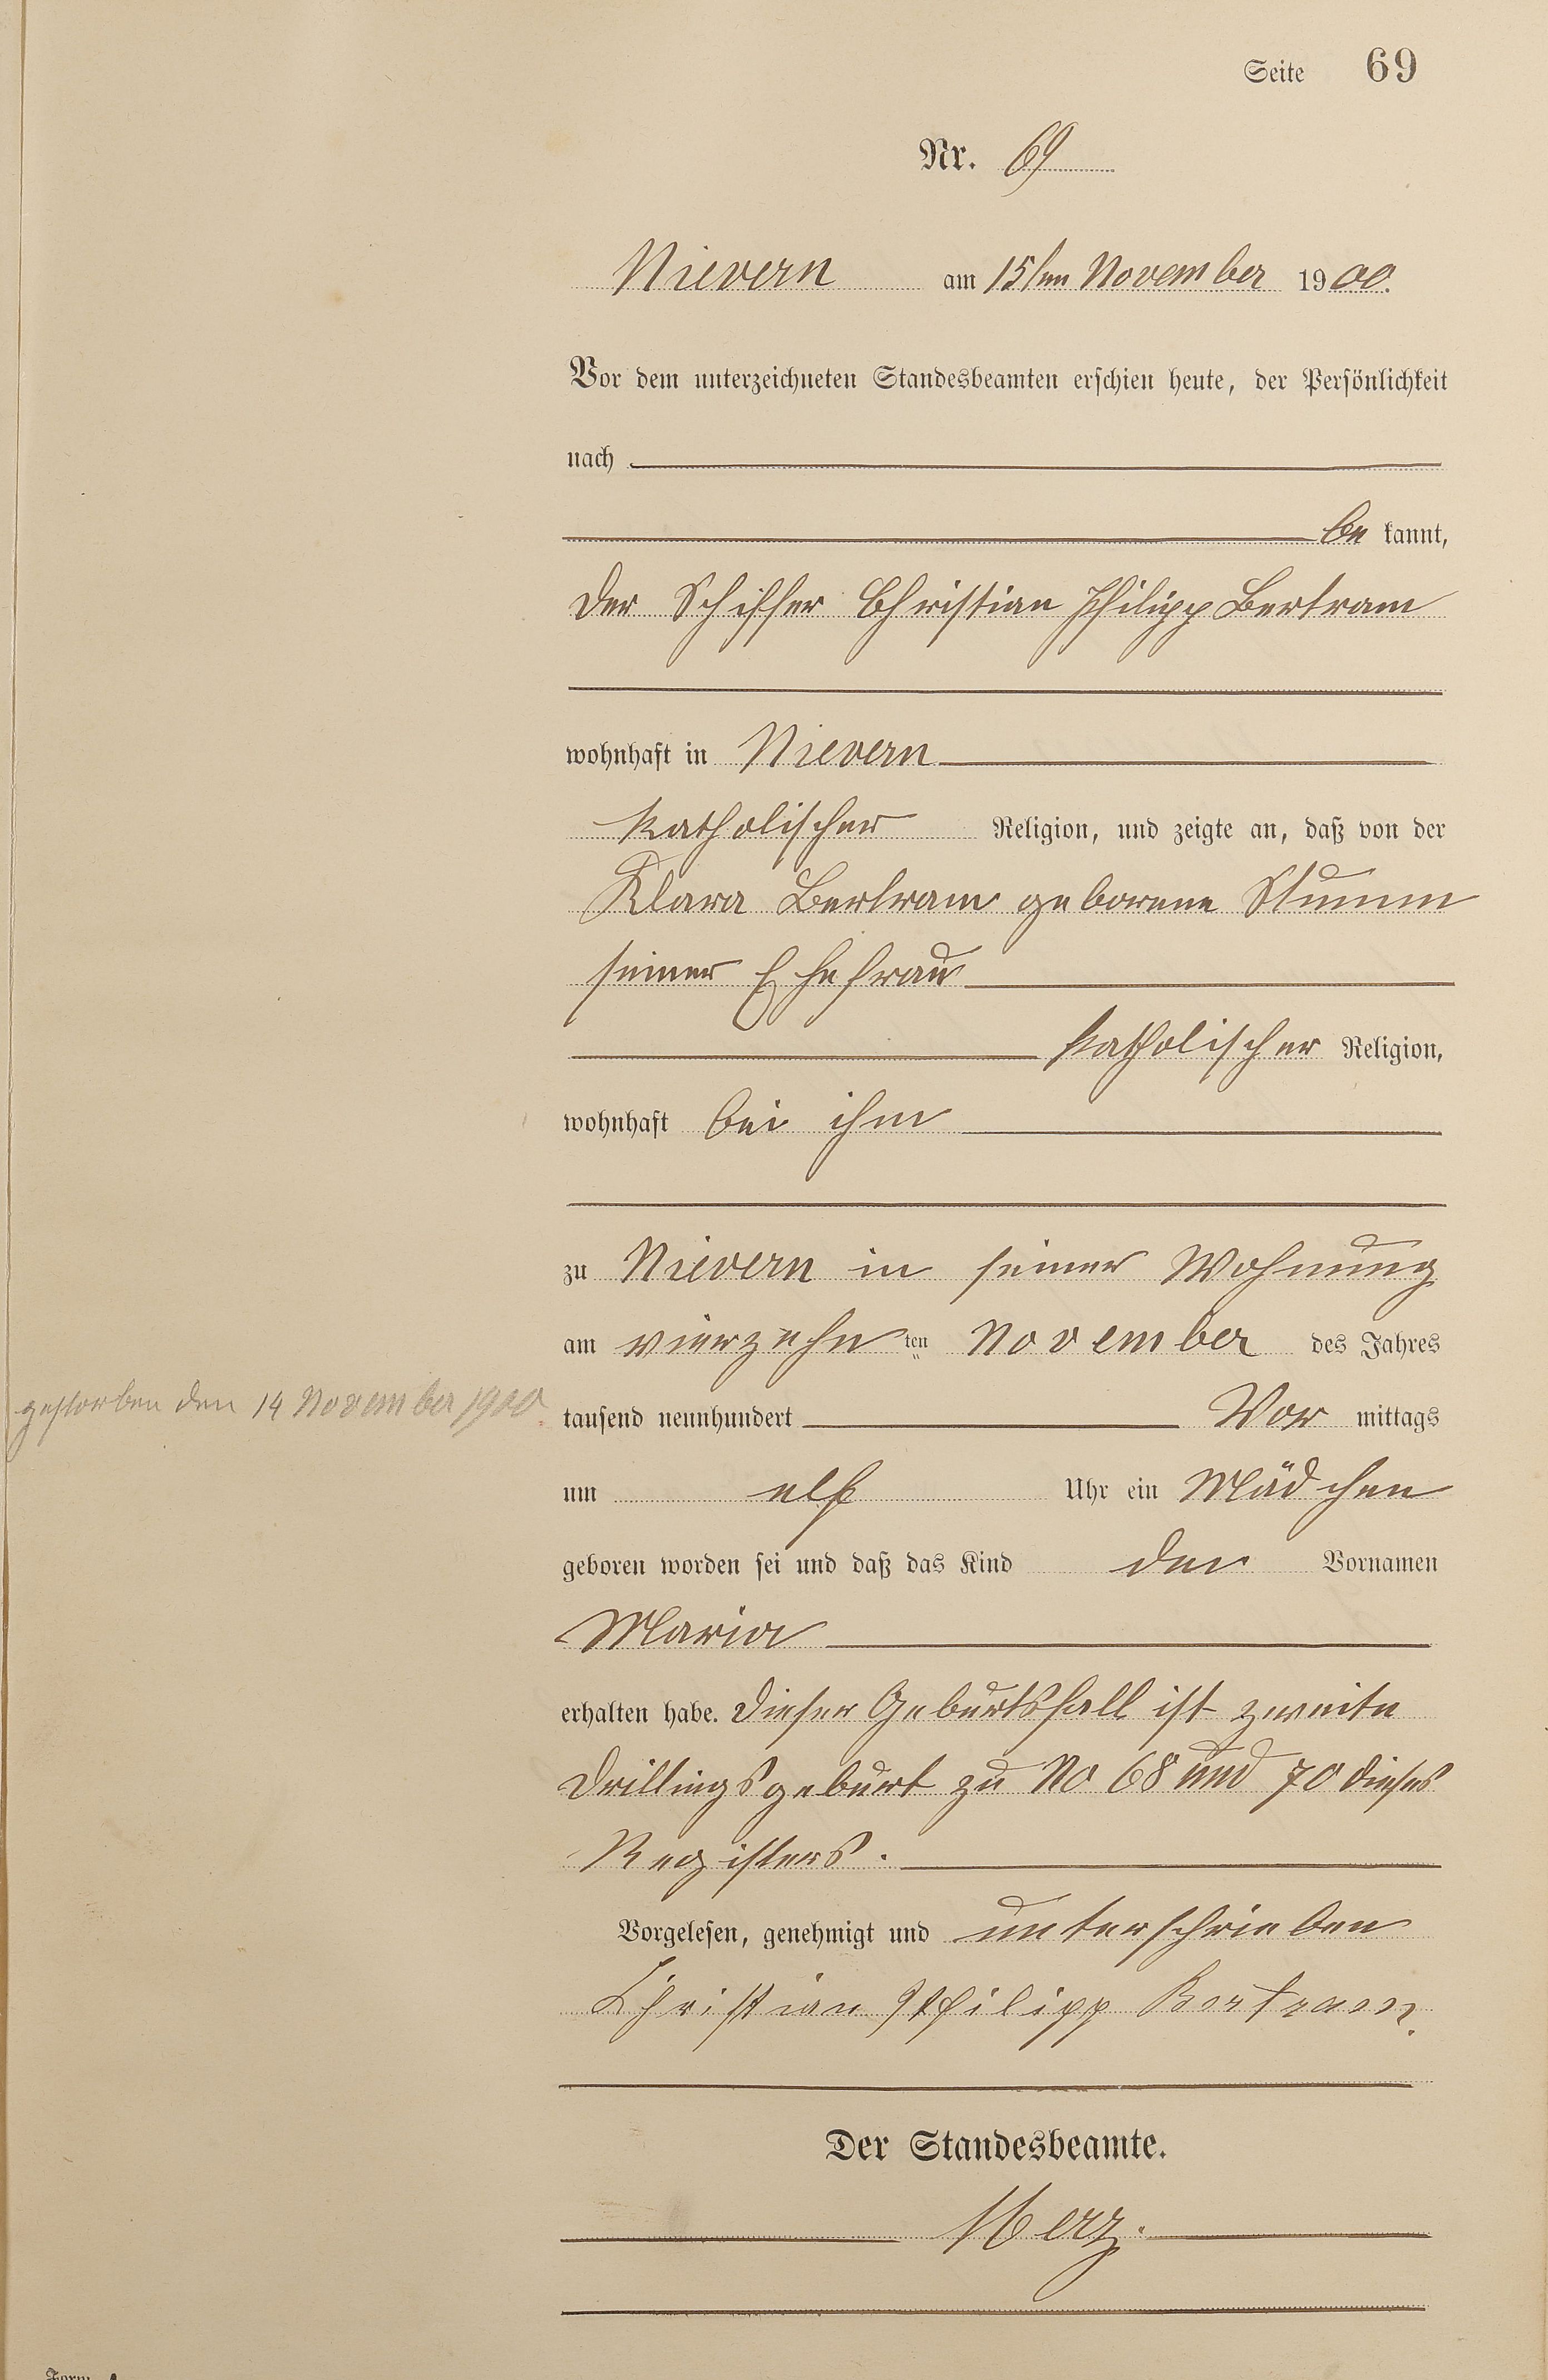 Seite 69
Nr. 69
Nievern am 15ten November 1900.
Vor dem unterzeichneten Standesbeamten erschien heute, der Persönlichkeit
nach
be kannt,
der Schiffer Christian Philipp Bertram
wohnhaft in Nievern
katholischer Religion, und zeigte an, daß von der
Klara Bertram geborene Stumm
seiner Ehefrau
katholischer Religion,
wohnhaft bei ihm
zu Nievern in seiner Wohnung
am vierzehn ten November des Jahres
gestorben den 14 November 1900.
tausend neunhundert Vor mittags
um elf Uhr ein Mädchen
geboren worden sei und daß das Kind den Vornamen
Maria
erhalten habe. Dieser Geburtsfall ist zweite
Drillingsgeburt zu No 68 und 70 dieses
Registers.
Vorgelesen, genehmigt und unterschrieben
Christian Philipp Bertram.
Der Standesbeamte.